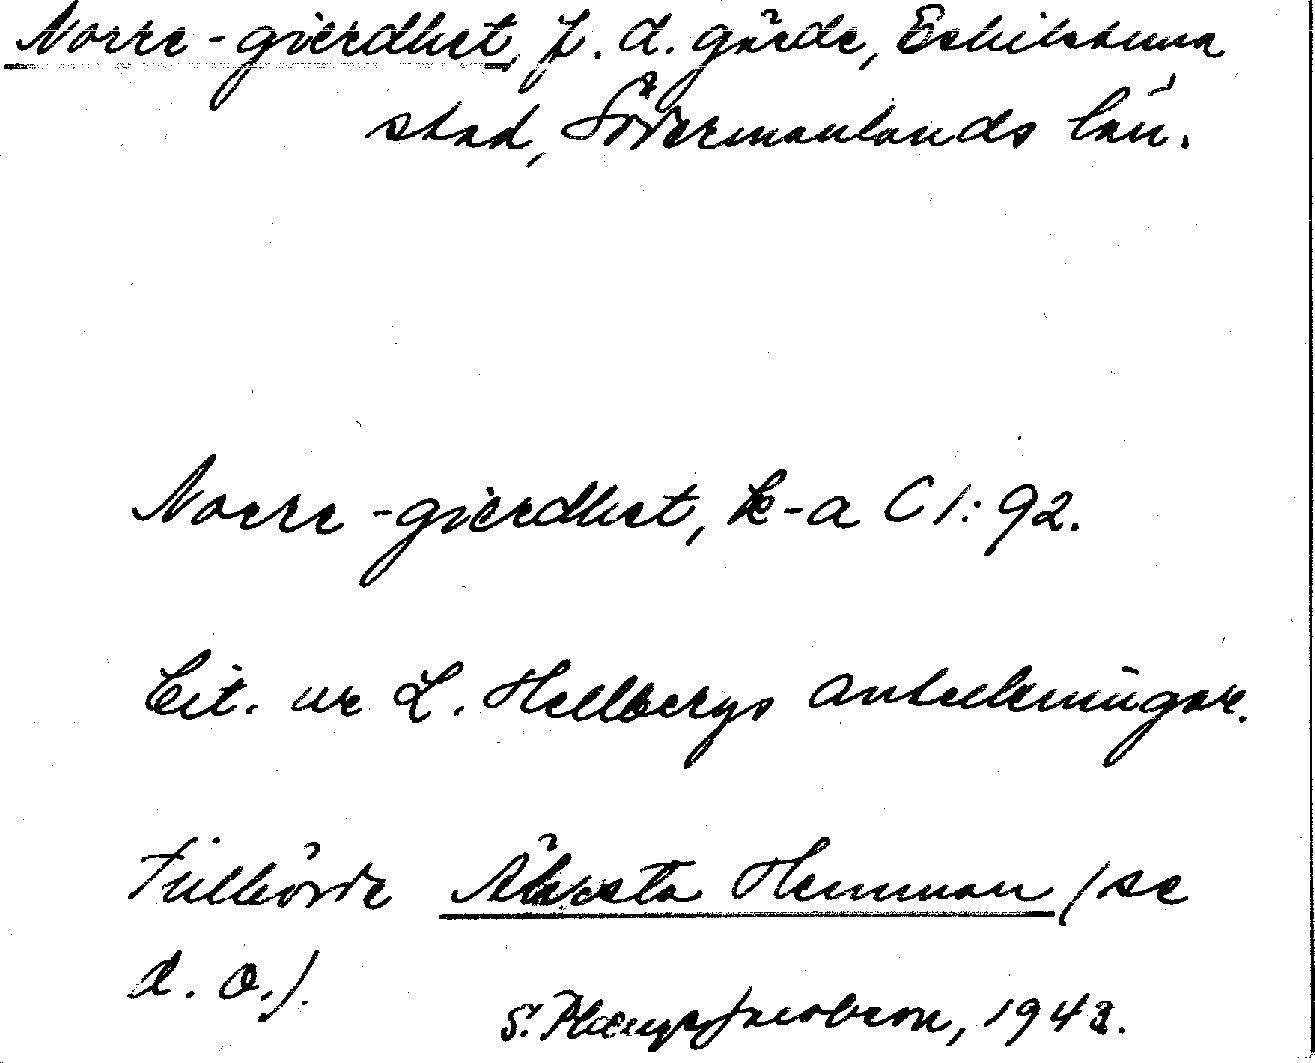 Norre-gierdhet, f. d. gärde, Eskilstuna
stad, Södermanlands län.
Norre-gierdhet, k-a C 1: 92.
Cit. ur L. Hellbergs anteckningar.
Tillhörde Hemman (se
d. o.).
S. 1943.